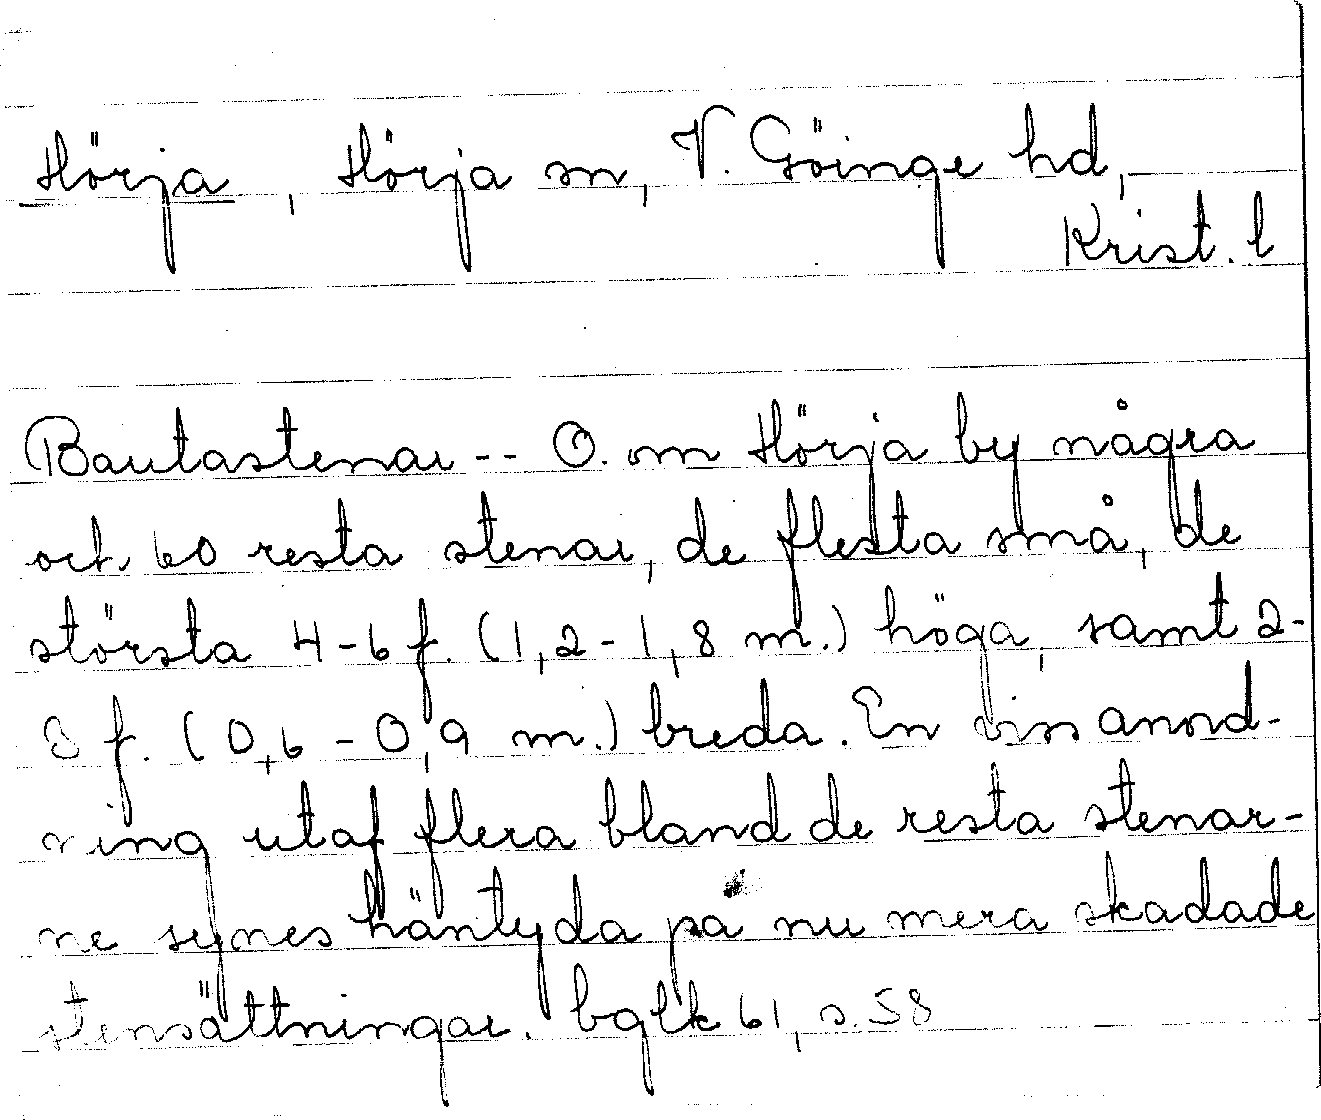 Hörja, Hörja sn, V. Göinge hd,
Krist. l
Bautastenar -- O. om Hörja by några
och 60 resta stenar, de flesta små, de
största 4-6 f. (1,2-1,8 m.) höga, samt 2-
3 f. (0,6-0,9 m.) breda. En viss anord-
ning utaf flera bland de resta stenar-
ne synes häntyda på nu mera skadade
stensättningar. bglk 61, s. 58